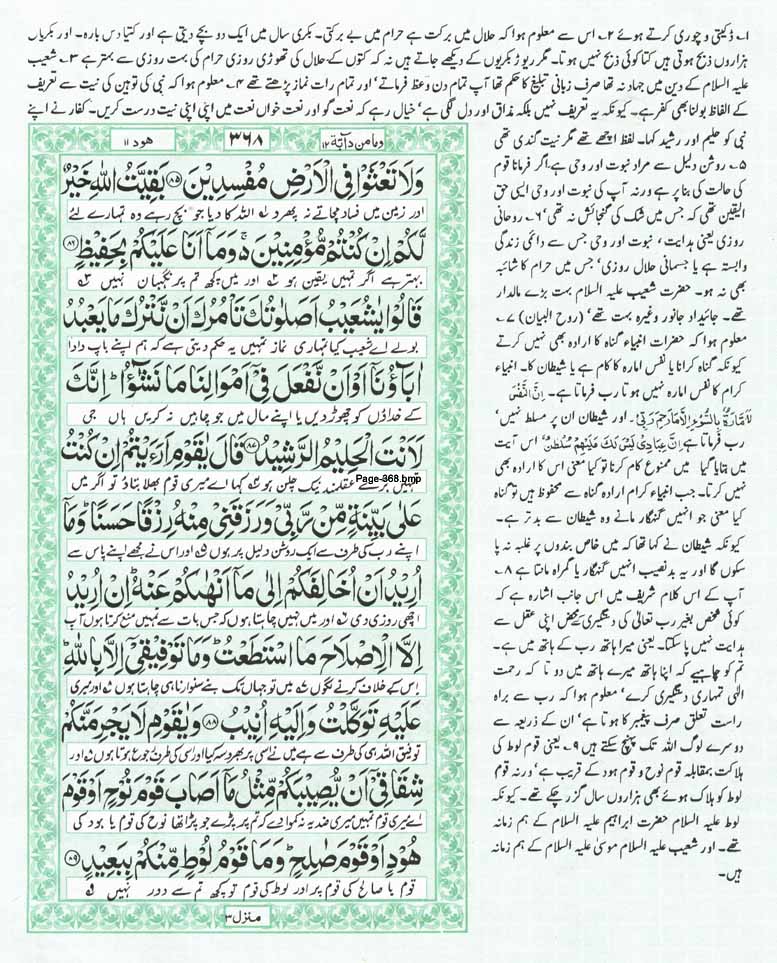 ۱۔ ڈکیتی و چوری کرتے ہوئے ۲۔ اس سے معلوم ہوا کہ حلال میں برکت ہے حرام میں بے برکتی۔ بکری سال میں ایک دو بچے دیتی ہے اور کتیا دس بارہ۔ اور بکریاں
ہزاروں ذبح ہوتی ہیں کتا کوئی ذبح نہیں ہوتا۔ مگر ریوڑ بکریوں کے دیکھے جاتے ہیں نہ کہ کتوں کے حلال کی تھوڑی روزی حرام کی بہت روزی سے بہتر ہے ۳۔ شعیب
علیہ السلام کے دین میں جہاد نہ تھا صرف زبانی تبلیغ کا حکم تھا آپ تمام دن وعظ فرماتے، اور تمام رات نماز پڑھتے تھے ۴۔ معلوم ہوا کہ نبی کی توہین کی نیت سے تعریف
کے الفاظ بولنا بھی کفر ہے۔ کیونکہ یہ تعریف نہیں بلکہ مذاق اور دل لگی ہے، خیال رہے کہ نعت گو اور نعت خواں نعت میں اپنی اپنی نیت درست کریں۔ کفار نے اپنے
نبی کو حلیم اور رشید کہا۔ لفظ اچھے تھے مگر نیت گندی تھی
۵۔ روشن دلیل سے مراد نبوت اور وحی ہے، اگر فرمانا قوم
کی حالت کی بنا پر ہے ورنہ آپ کی نبوت اور وحی ایسی حق
الیقین تھی کہ جس میں شک کی گنجائش نہ تھی ۶۔ روحانی
روزی یعنی ہدایت، نبوت اور وحی جس سے دائمی زندگی
وابستہ ہے یا جسمانی حلال روزی، جس میں حرام کا شائبہ
بھی نہ ہو۔ حضرت شعیب علیہ السلام بہت بڑے مالدار
تھے۔ جائیداد جانور وغیرہ بہت تھے، (روح البیان) ۷۔
معلوم ہوا کہ حضرات انبیاء گناہ کا ارادہ بھی نہیں کرتے
کیونکہ گناہ کرانا یا نفس امارہ کا کام ہے یا شیطان کا۔ انبیاء
کرام کا نفس امارہ نہیں ہوتا رب فرماتا ہے۔ اِنَّ النَّفْسَ
لَاَمَّارَةٌۢ بِالسُّوْٓءِ اِلَّا مَا رَحِمَ رَبِّیْ۔ اور شیطان ان پر مسلط نہیں،
رب فرماتا ہے اِنَّ عِبَادِیْ لَیْسَ لَكَ عَلَیْهِمْ سُلْطٰنٌ، اس آیت
میں بتایا گیا میں ممنوع کام کرنا تو کیا معنی اس کا ارادہ بھی
نہیں کرتا۔ جب انبیاء کرام ارادہ گناہ سے محفوظ ہیں تو گناہ
کیا معنی جو انہیں گنہگار مانے وہ شیطان سے بدتر ہے۔
کیونکہ شیطان نے کہا تھا کہ میں خاص بندوں پر غلبہ نہ پا
سکوں گا اور یہ بدنصیب انہیں گنہگار یا گمراہ مانتا ہے ۸۔
آپ کے اس کلام شریف میں اس جانب اشارہ ہے کہ
کوئی شخص بغیر رب تعالی کی دستگیری محض اپنی عقل سے
ہدایت نہیں پا سکتا۔ یعنی میرا ہاتھ رب کے ہاتھ میں ہے۔
تم کو چاہیے کہ اپنا ہاتھ میرے ہاتھ میں دو تا کہ رحمت
الہی تمہاری دستگیری کرے، معلوم ہوا کہ رب سے براہ
راست تعلق صرف پیغمبر کا ہوتا ہے، ان کے ذریعہ سے
دوسرے لوگ اللہ تک پہنچ سکتے ہیں ۹۔ یعنی قوم لوط کی
ہلاکت بمقابلہ قوم نوح و قوم ہود کے قریب ہے، ورنہ قوم
لوط کو ہلاک ہوئے بھی ہزاروں سال گزر چکے تھے۔ کیونکہ
لوط علیہ السلام حضرت ابراہیم علیہ السلام کے ہم زمانہ
تھے۔ اور شعیب علیہ السلام موسیٰ علیہ السلام کے ہم زمانہ
ہیں۔
ومامن دآبة ۱۲ ۳۶۸ هود ۱۱
وَلَا تَعْثَوْا فِی الْاَرْضِ مُفْسِدِیْنَ ﴿۸۵﴾ بَقِیَّتُ اللّٰهِ خَیْرٌ
اور زمین میں فساد مچاتے نہ پھرو ۱ اللہ کا دیا جو بچ رہے وہ تمہارے لئے
لَّكُمْ اِنْ كُنْتُمْ مُّؤْمِنِیْنَ ۚ وَمَاۤ اَنَا عَلَیْكُمْ بِحَفِیْظٍ ﴿۸۶﴾
بہتر ہے اگر تمہیں یقین ہو ۲ اور میں کچھ تم پر نگہبان نہیں ۳
قَالُوْا یٰشُعَیْبُ اَصَلٰوتُكَ تَاْمُرُكَ اَنْ نَّتْرُكَ مَا یَعْبُدُ
بولے اے شعیب کیا تمہاری نماز تمہیں یہ حکم دیتی ہے کہ ہم اپنے باپ دادا
اٰبَآؤُنَاۤ اَوْ اَنْ نَّفْعَلَ فِیْۤ اَمْوَالِنَا مَا نَشٰٓؤُا ؕ اِنَّكَ
کے خداؤں کو چھوڑ دیں یا اپنے مال میں جو چاہیں نہ کریں ہاں جی
لَاَنْتَ الْحَلِیْمُ الرَّشِیْدُ ﴿۸۷﴾ قَالَ یٰقَوْمِ اَرَءَیْتُمْ اِنْ كُنْتُ
تمہیں بڑے عقلمند نیک چلن ہو ۴ کہا اے میری قوم بھلا بتاؤ تو اگر میں
Page-368.bmp
عَلٰی بَیِّنَةٍ مِّنْ رَّبِّیْ وَرَزَقَنِیْ مِنْهُ رِزْقًا حَسَنًا ؕ وَمَاۤ
اپنے رب کی طرف سے ایک روشن دلیل پر ہوں ۵ اور اس نے مجھے اپنے پاس سے
اُرِیْدُ اَنْ اُخَالِفَكُمْ اِلٰی مَاۤ اَنْهٰىكُمْ عَنْهُ ؕ اِنْ اُرِیْدُ
اچھی روزی دی ۶ اور میں نہیں چاہتا ہوں کہ جس بات سے تمہیں منع کرتا ہوں آپ
اِلَّا الْاِصْلَاحَ مَا اسْتَطَعْتُ ؕ وَمَا تَوْفِیْقِیْۤ اِلَّا بِاللّٰهِ ؕ
اس کے خلاف کرنے لگوں ۷ میں تو جہاں تک بنے سنوارنا ہی چاہتا ہوں اور میری
عَلَیْهِ تَوَكَّلْتُ وَاِلَیْهِ اُنِیْبُ ﴿۸۸﴾ وَیٰقَوْمِ لَا یَجْرِمَنَّكُمْ
توفیق اللہ ہی کی طرف سے ہے میں نے اسی پر بھروسہ کیا اور اسی کی طرف رجوع ہوتا ہوں ۸ اور
شِقَاقِیْۤ اَنْ یُّصِیْبَكُمْ مِّثْلُ مَاۤ اَصَابَ قَوْمَ نُوْحٍ اَوْ قَوْمَ
اے میری قوم تمہیں میری ضد یہ نہ کموا دے کہ تم پر پڑے جو پڑا تھا نوح کی قوم یا ہود کی
هُوْدٍ اَوْ قَوْمَ صٰلِحٍ ؕ وَمَا قَوْمُ لُوْطٍ مِّنْكُمْ بِبَعِیْدٍ ﴿۸۹﴾
قوم یا صالح کی قوم پر اور لوط کی قوم تو کچھ تم سے دور نہیں ۹
منزل ۳